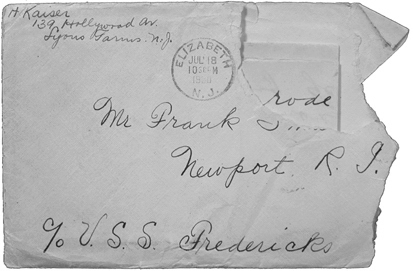 H Kaiser
139 Hollywood Av.
Lyons Farms. N.J.
ELIZABETH
JUL 18
10 M
N.J.
rode
Mr Frank
Newport. R. I.
c/o U. S. S. Fredericks